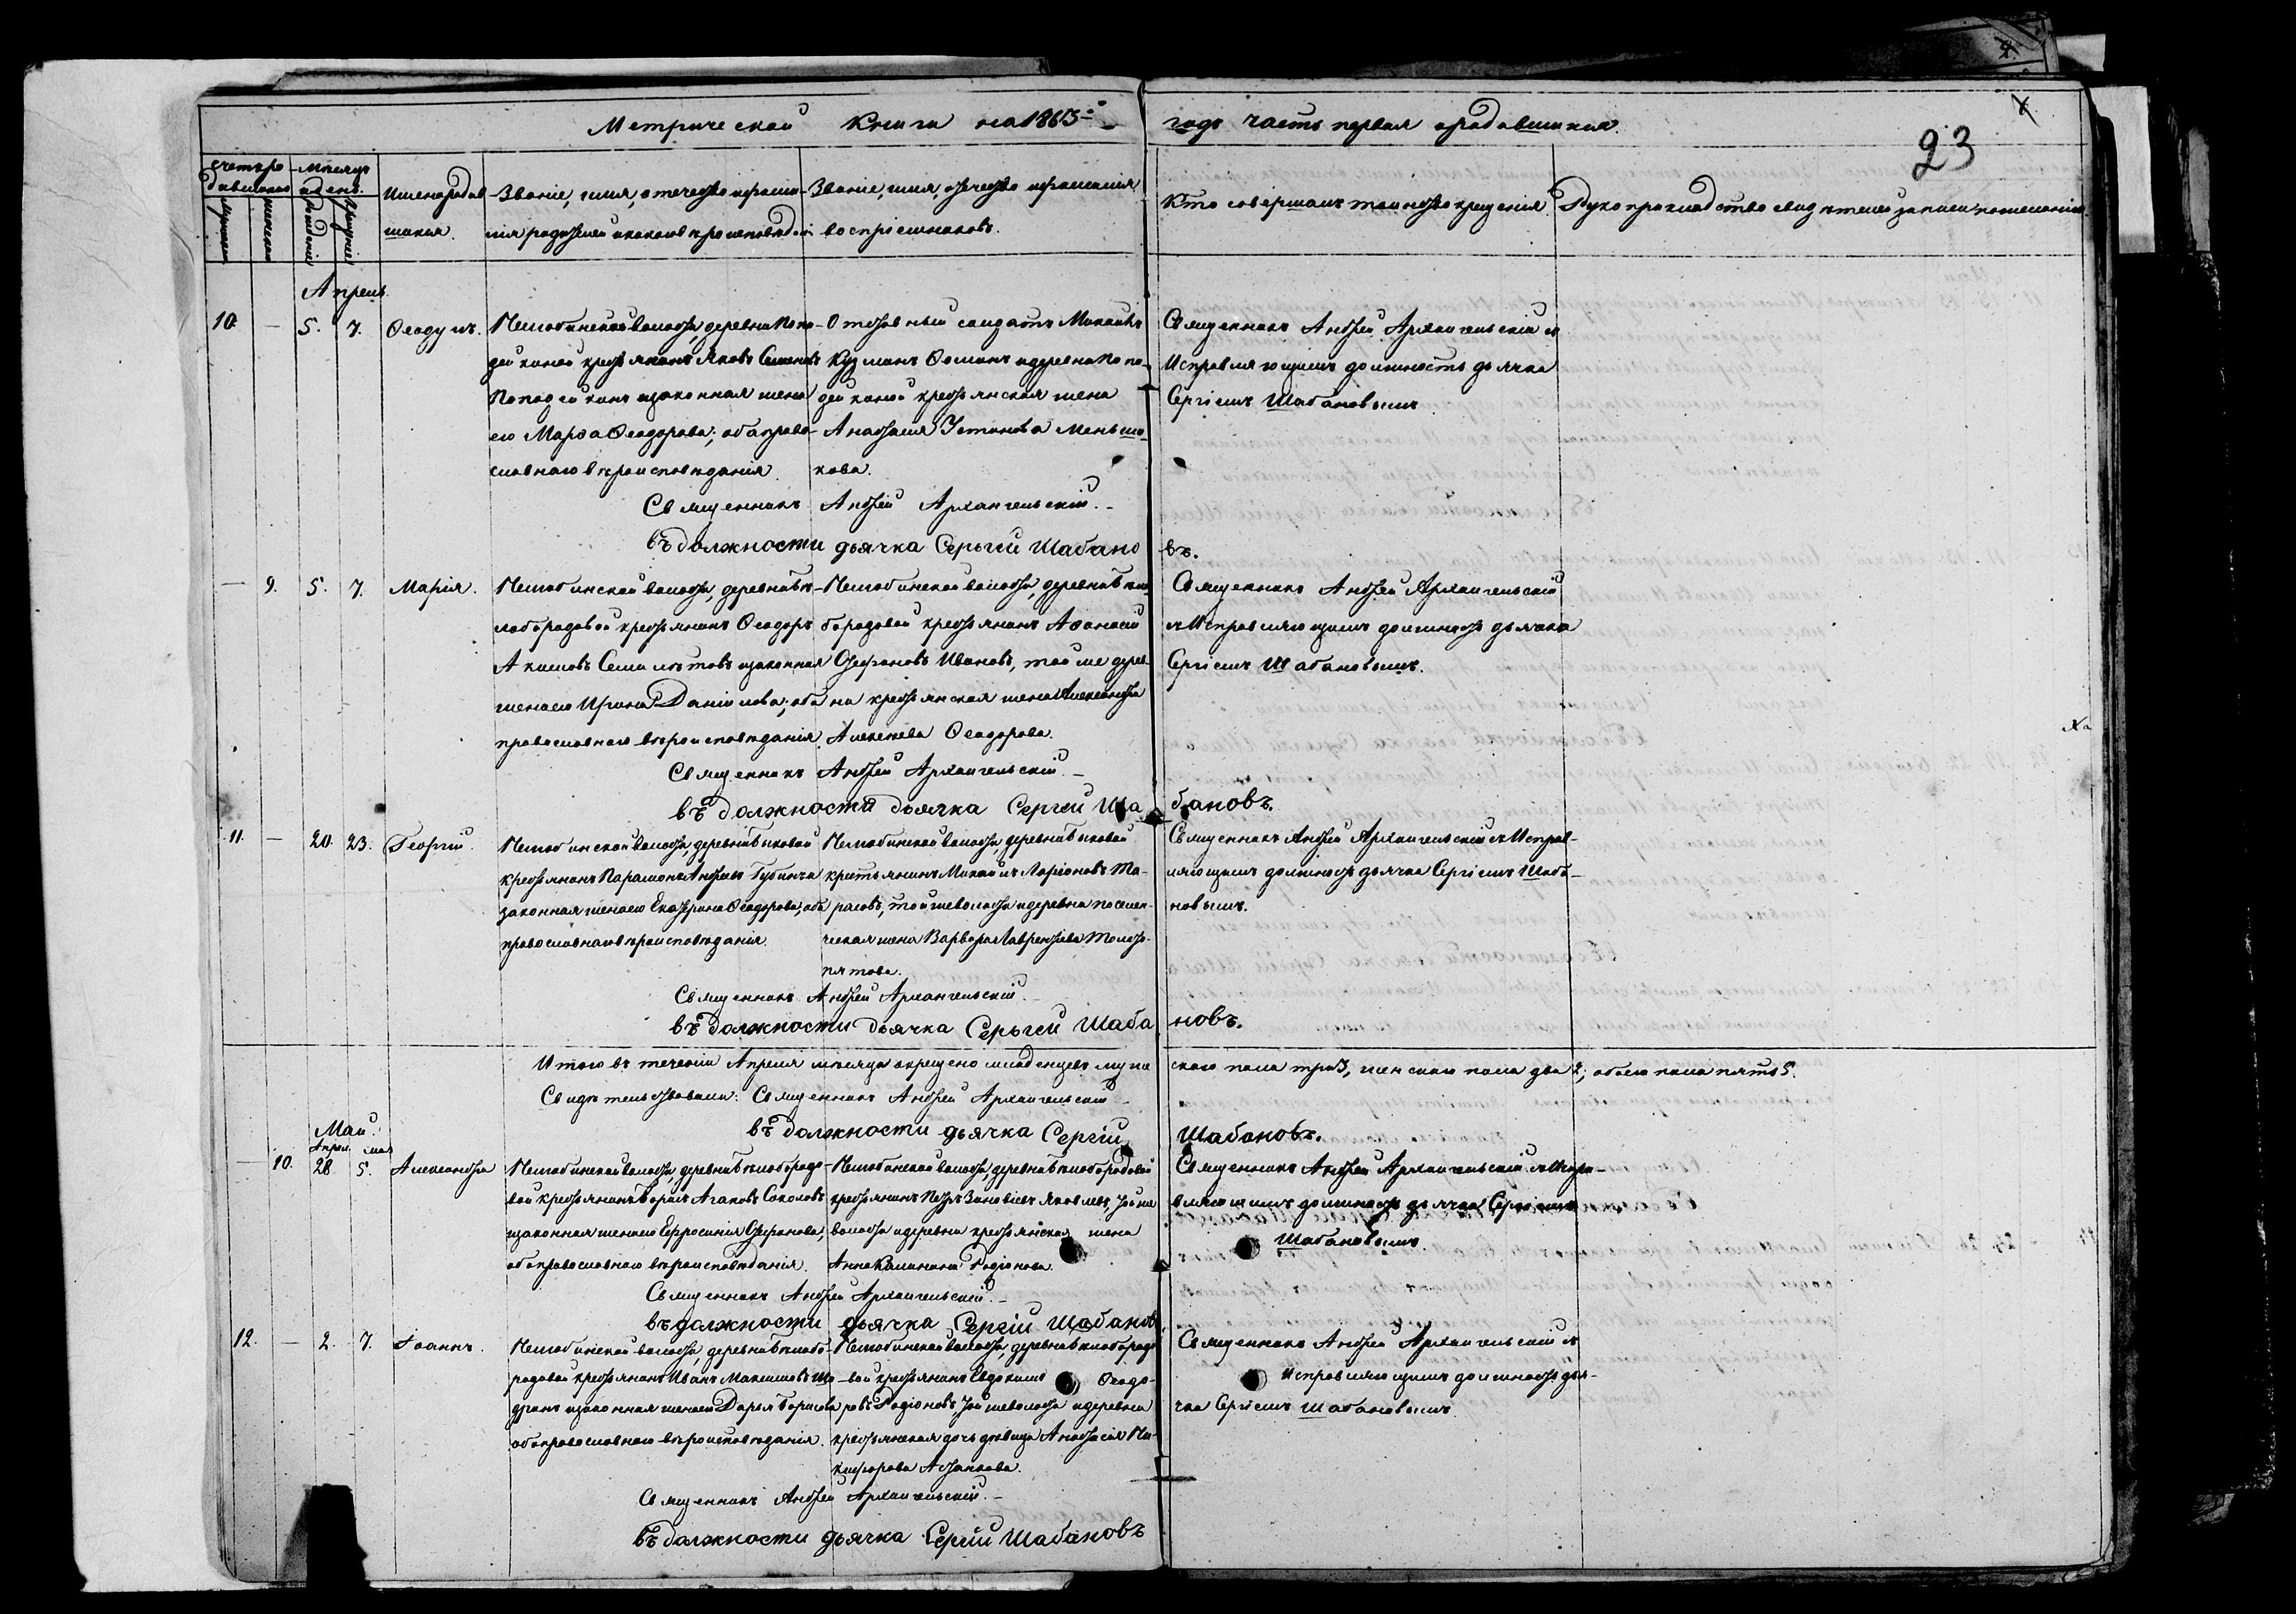 Метрической Книги на 1863й годъ часть первая о родившихся.
23
Счетъ ро-
дившихся
мужеска
женска
Мѣсяцъ
и день.
рожденіе
крещеніе
Имена родив-
шихся.
Званіе, имя, отечество и фами-
лія родителей и какого вѣроисповѣдан.
Званіе, имя, отчество и фамилія
воспріемниковъ.
Кто совершалъ таинство крещенія.
Рукоприкладство свидѣтелей записи по желанію
Апрель.
10. — 5. 7. Ѳеодулъ.
волости, деревни Попа-
дейкиной крестьянинъ Яковъ Семеновъ
Попадейкинъ и законная жена
его Марѳа Ѳеодорова; оба право-
славнаго вѣроисповѣданія.
Отставный солдатъ Михаилъ
Кузминъ Ѳоминъ и деревни Попа-
дейкиной крестьянская жена
Анастасія Устинова Меньши-
кова.
Священникъ Андрей Архангельскій съ
Исправляющимъ должность дьячка
Сергіемъ Шабановымъ
Священникъ Андрей Архангельскій.
въ должности дьячка Сергѣй Шабановъ.
— 9. 5. 7. Марія.
волости, деревни Бѣ-
лобородовой крестьянинъ Ѳеодоръ
Акимовъ и законная
жена его Ирина Даніилова; оба
православнаго вѣроисповѣданія.
волости, деревни Бѣло-
бородовой крестьянинъ Аѳанасій
Стефановъ Ивановъ, той же дерев-
ни крестьянская жена Александра
Алексѣева Ѳеодорова.
Священникъ Андрей Архангельскій
съ Исправляющимъ должность дьячка
Сергіемъ Шабановымъ.
Священникъ Андрей Архангельскій.
въ должности дьячка Сергѣй Шабановъ.
11. — 20. 23. Георгій.
волости, деревни Быковой
крестьянинъ Парамонъ Андреевъ
законная жена его Екатерина Ѳеодорова; оба
православнаго вѣроисповѣданія.
волости, деревни Быковой
крестьянинъ Михаилъ Ларіоновъ Та-
расовъ, той же волости и деревни поселен-
ческая жена Варвара Лаврентьева Толсто-
пятова.
Священникъ Андрей Архангельскій съ Исправ-
ляющимъ должность дьячка Сергіемъ Шаба-
новымъ.
Священникъ Андрей Архангельскій.
въ должности дьячка Сергѣй Шабановъ.
Итого въ теченіи Апреля мѣсяца окрещено младенцевъ мужескаго пола три 3, женскаго пола два 2; обоего пола пять 5.
Свидѣтельствовали: Священникъ Андрей Архангельскій
въ должности дьячка Сергій Шабановъ.
Май.
Апрел. мая
— 10. 28. 5. Александра
волости, деревни Бѣлобородо-
вой крестьянинъ Борисъ Соколовъ
и законная жена его Евфросинія Стефанова,
оба православнаго вѣроисповѣданія.
волости, деревни Бѣлобородовой
крестьянинъ Петръ Зиновіевъ Яковлевъ, той же
волости и деревни крестьянская жена
Анна Калинина Родіонова.
Священникъ Андрей Архангельскій съ Испра-
вляющимъ должность дьячка Сергіемъ
Шабановымъ.
Священникъ Андрей Архангельскій.
въ должности дьячка Сергій Шабановъ.
12. — 2. 7. Іоаннъ.
волости, деревни Бѣлобо-
родовой крестьянинъ Иванъ Максимовъ
и законная жена его Дарья Борисова
оба православнаго вѣроисповѣданія.
волости, деревни Бѣлобородо-
вой крестьянинъ Евдокимъ Ѳеодо-
ровъ Родіоновъ, той же волости и деревни
крестьянская дочь дѣвица Анастасія Ни-
кифорова
Священникъ Андрей Архангельскій съ
Исправляющимъ должность дья-
чка Сергіемъ Шабановымъ
Священникъ Андрей Архангельскій.
въ должности дьячка Сергій Шабановъ